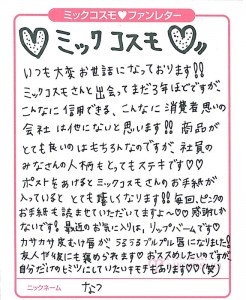 ミックコスモ♥ファンレター
♡ミックコスモ♡
いつも大変お世話になっております!!
ミックコスモさんと出会ってまだ3年ほどですが、
こんなに信用できる、こんなに消費者思いの
会社は他にないと思います!! 商品が
とても良いのはもちろんなのですが、社員の
みなさんの人柄もとってもステキです♡♡
ポストをあけるとミックコスモさんのお手紙が
入っているととても嬉しくなります!!毎回、ピンクの
お手紙も読ませていただいてますよ〜♡♡感謝しか
ないです!最近のお気に入りは、リップバームです♡
カサカサ皮むけ唇が、うるうるプルプル唇になりました!
友人や妹にも褒められます♡おススメしたいのですが、
自分だけのヒミツにしていたいキモチもあります♡♡(笑)
ニックネーム なつ